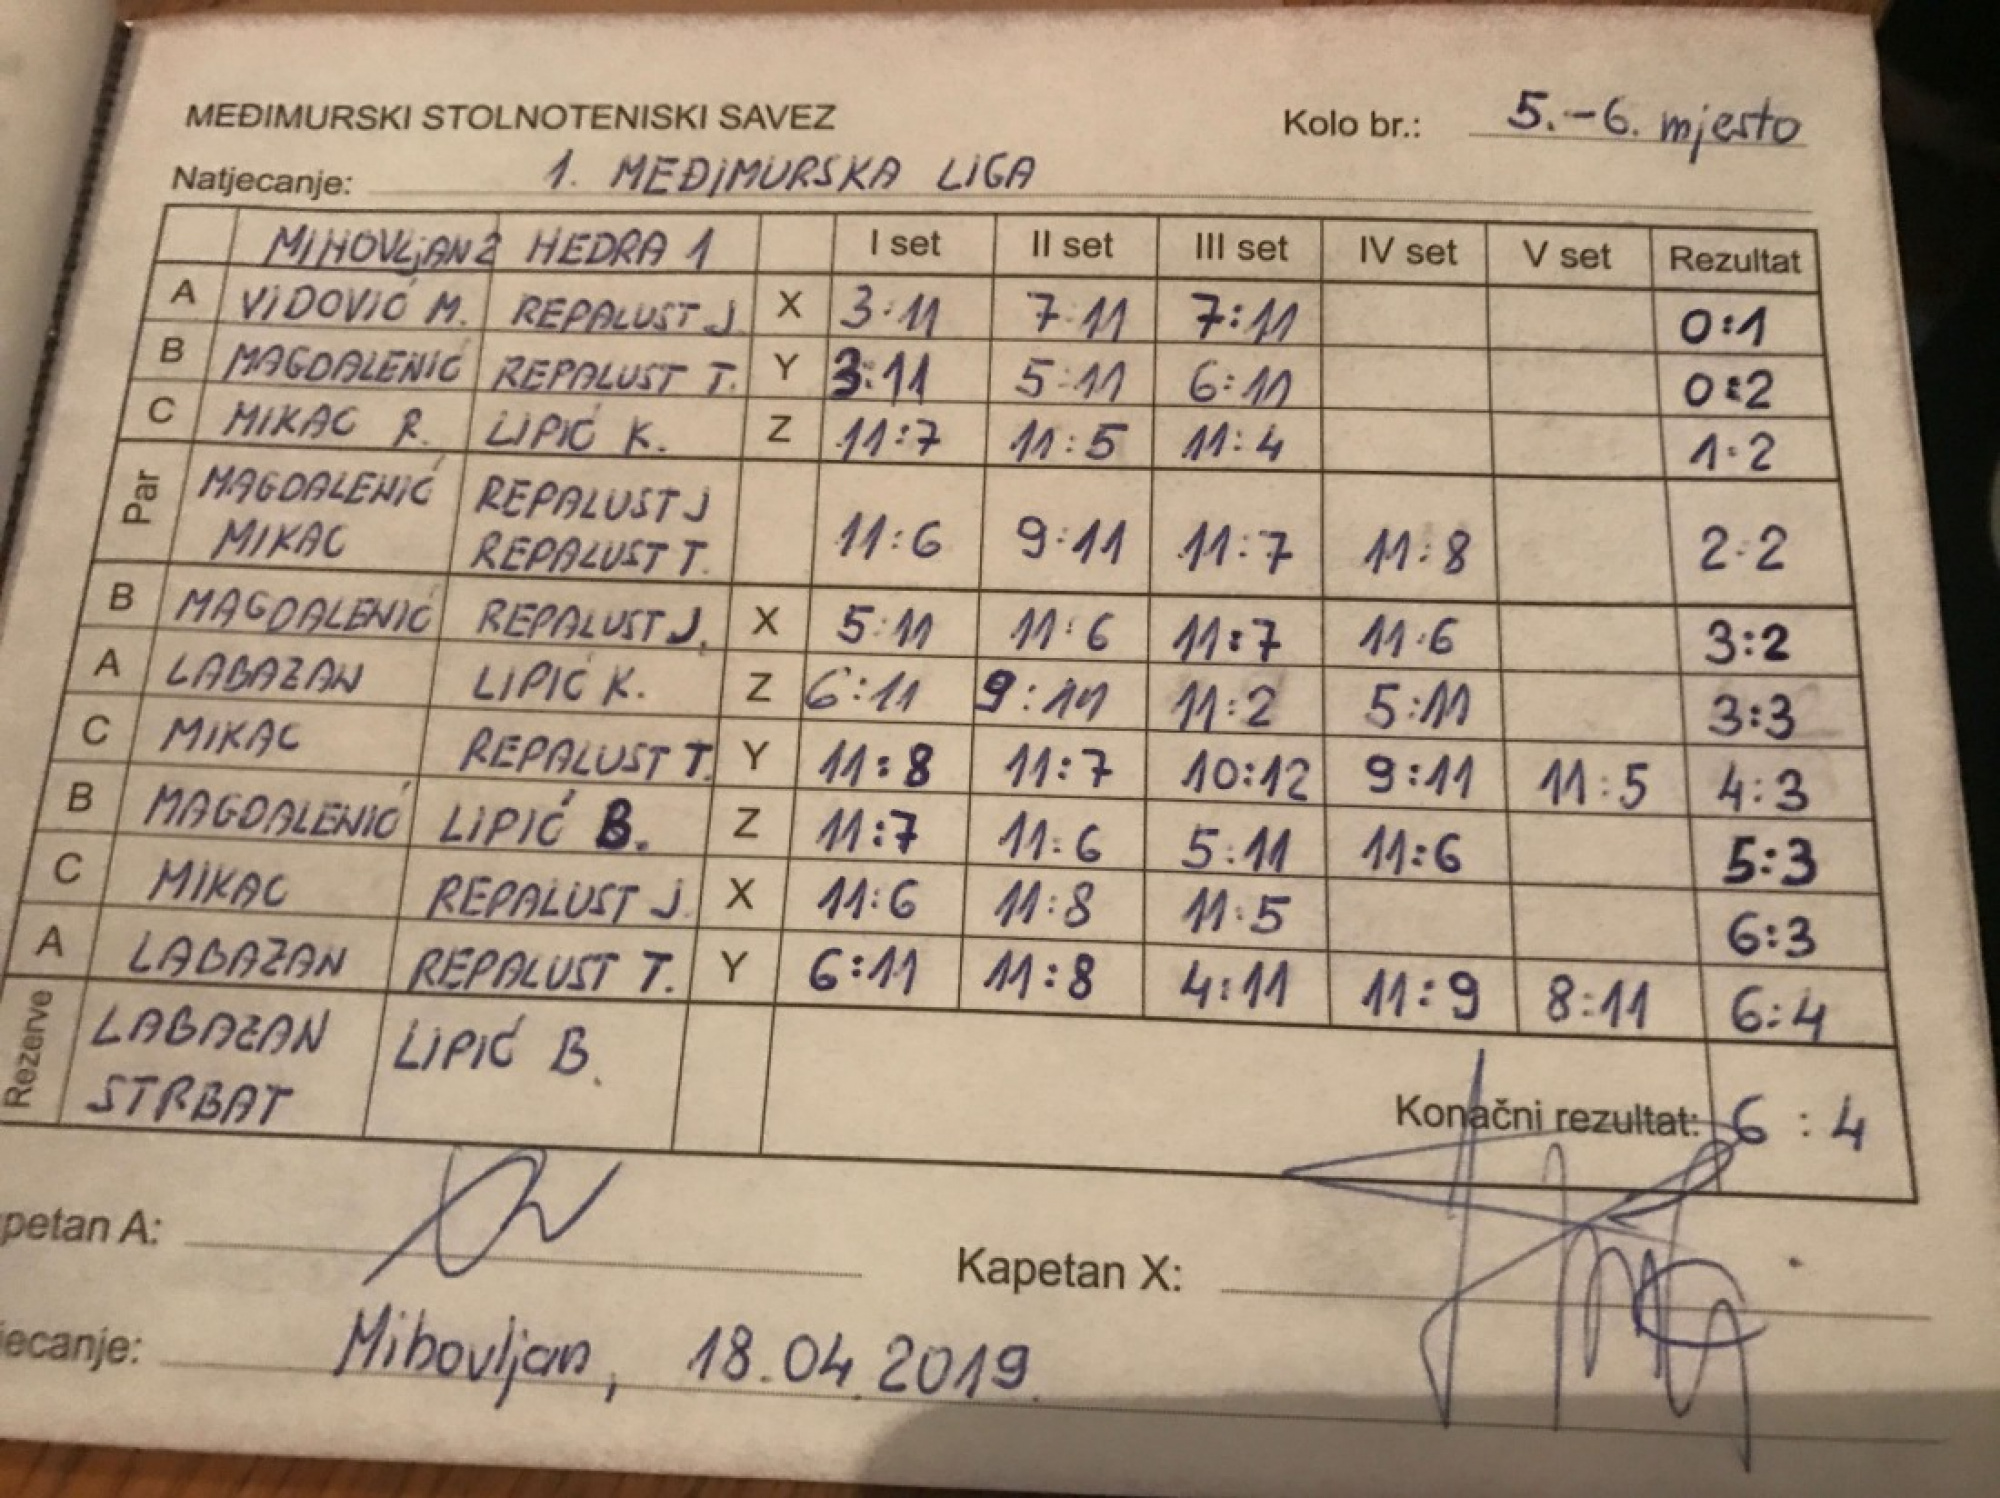 MEĐIMURSKI STOLNOTENISKI SAVEZ Kolo br.: 5.-6. mjesto
Natjecanje: 1. MEĐIMURSKA LIGA
MIHOVLJAN 2 HEDRA 1 I set II set III set IV set V set Rezultat
A VIDOVIĆ M. REPALUST J. X 3:11 7:11 7:11 0:1
B MAGDALENIĆ REPALUST T. Y 3:11 5:11 6:11 0:2
C MIKAC R. LIPIĆ K. Z 11:7 11:5 11:4 1:2
Par MAGDALENIĆ REPALUST J
MIKAC REPALUST T. 11:6 9:11 11:7 11:8 2:2
B MAGDALENIĆ REPALUST J. X 5:11 11:6 11:7 11:6 3:2
A LABAZAN LIPIĆ K. Z 6:11 9:11 11:2 5:11 3:3
C MIKAC REPALUST T. Y 11:8 11:7 10:12 9:11 11:5 4:3
B MAGDALENIĆ LIPIĆ B. Z 11:7 11:6 5:11 11:6 5:3
C MIKAC REPALUST J. X 11:6 11:8 11:5 6:3
A LABAZAN REPALUST T. Y 6:11 11:8 4:11 11:9 8:11 6:4
Rezerve LABAZAN LIPIĆ B.
STRBAT
Konačni rezultat: 6:4
petan A: Kapetan X:
jecanje: Mihovljan, 18.04.2019.